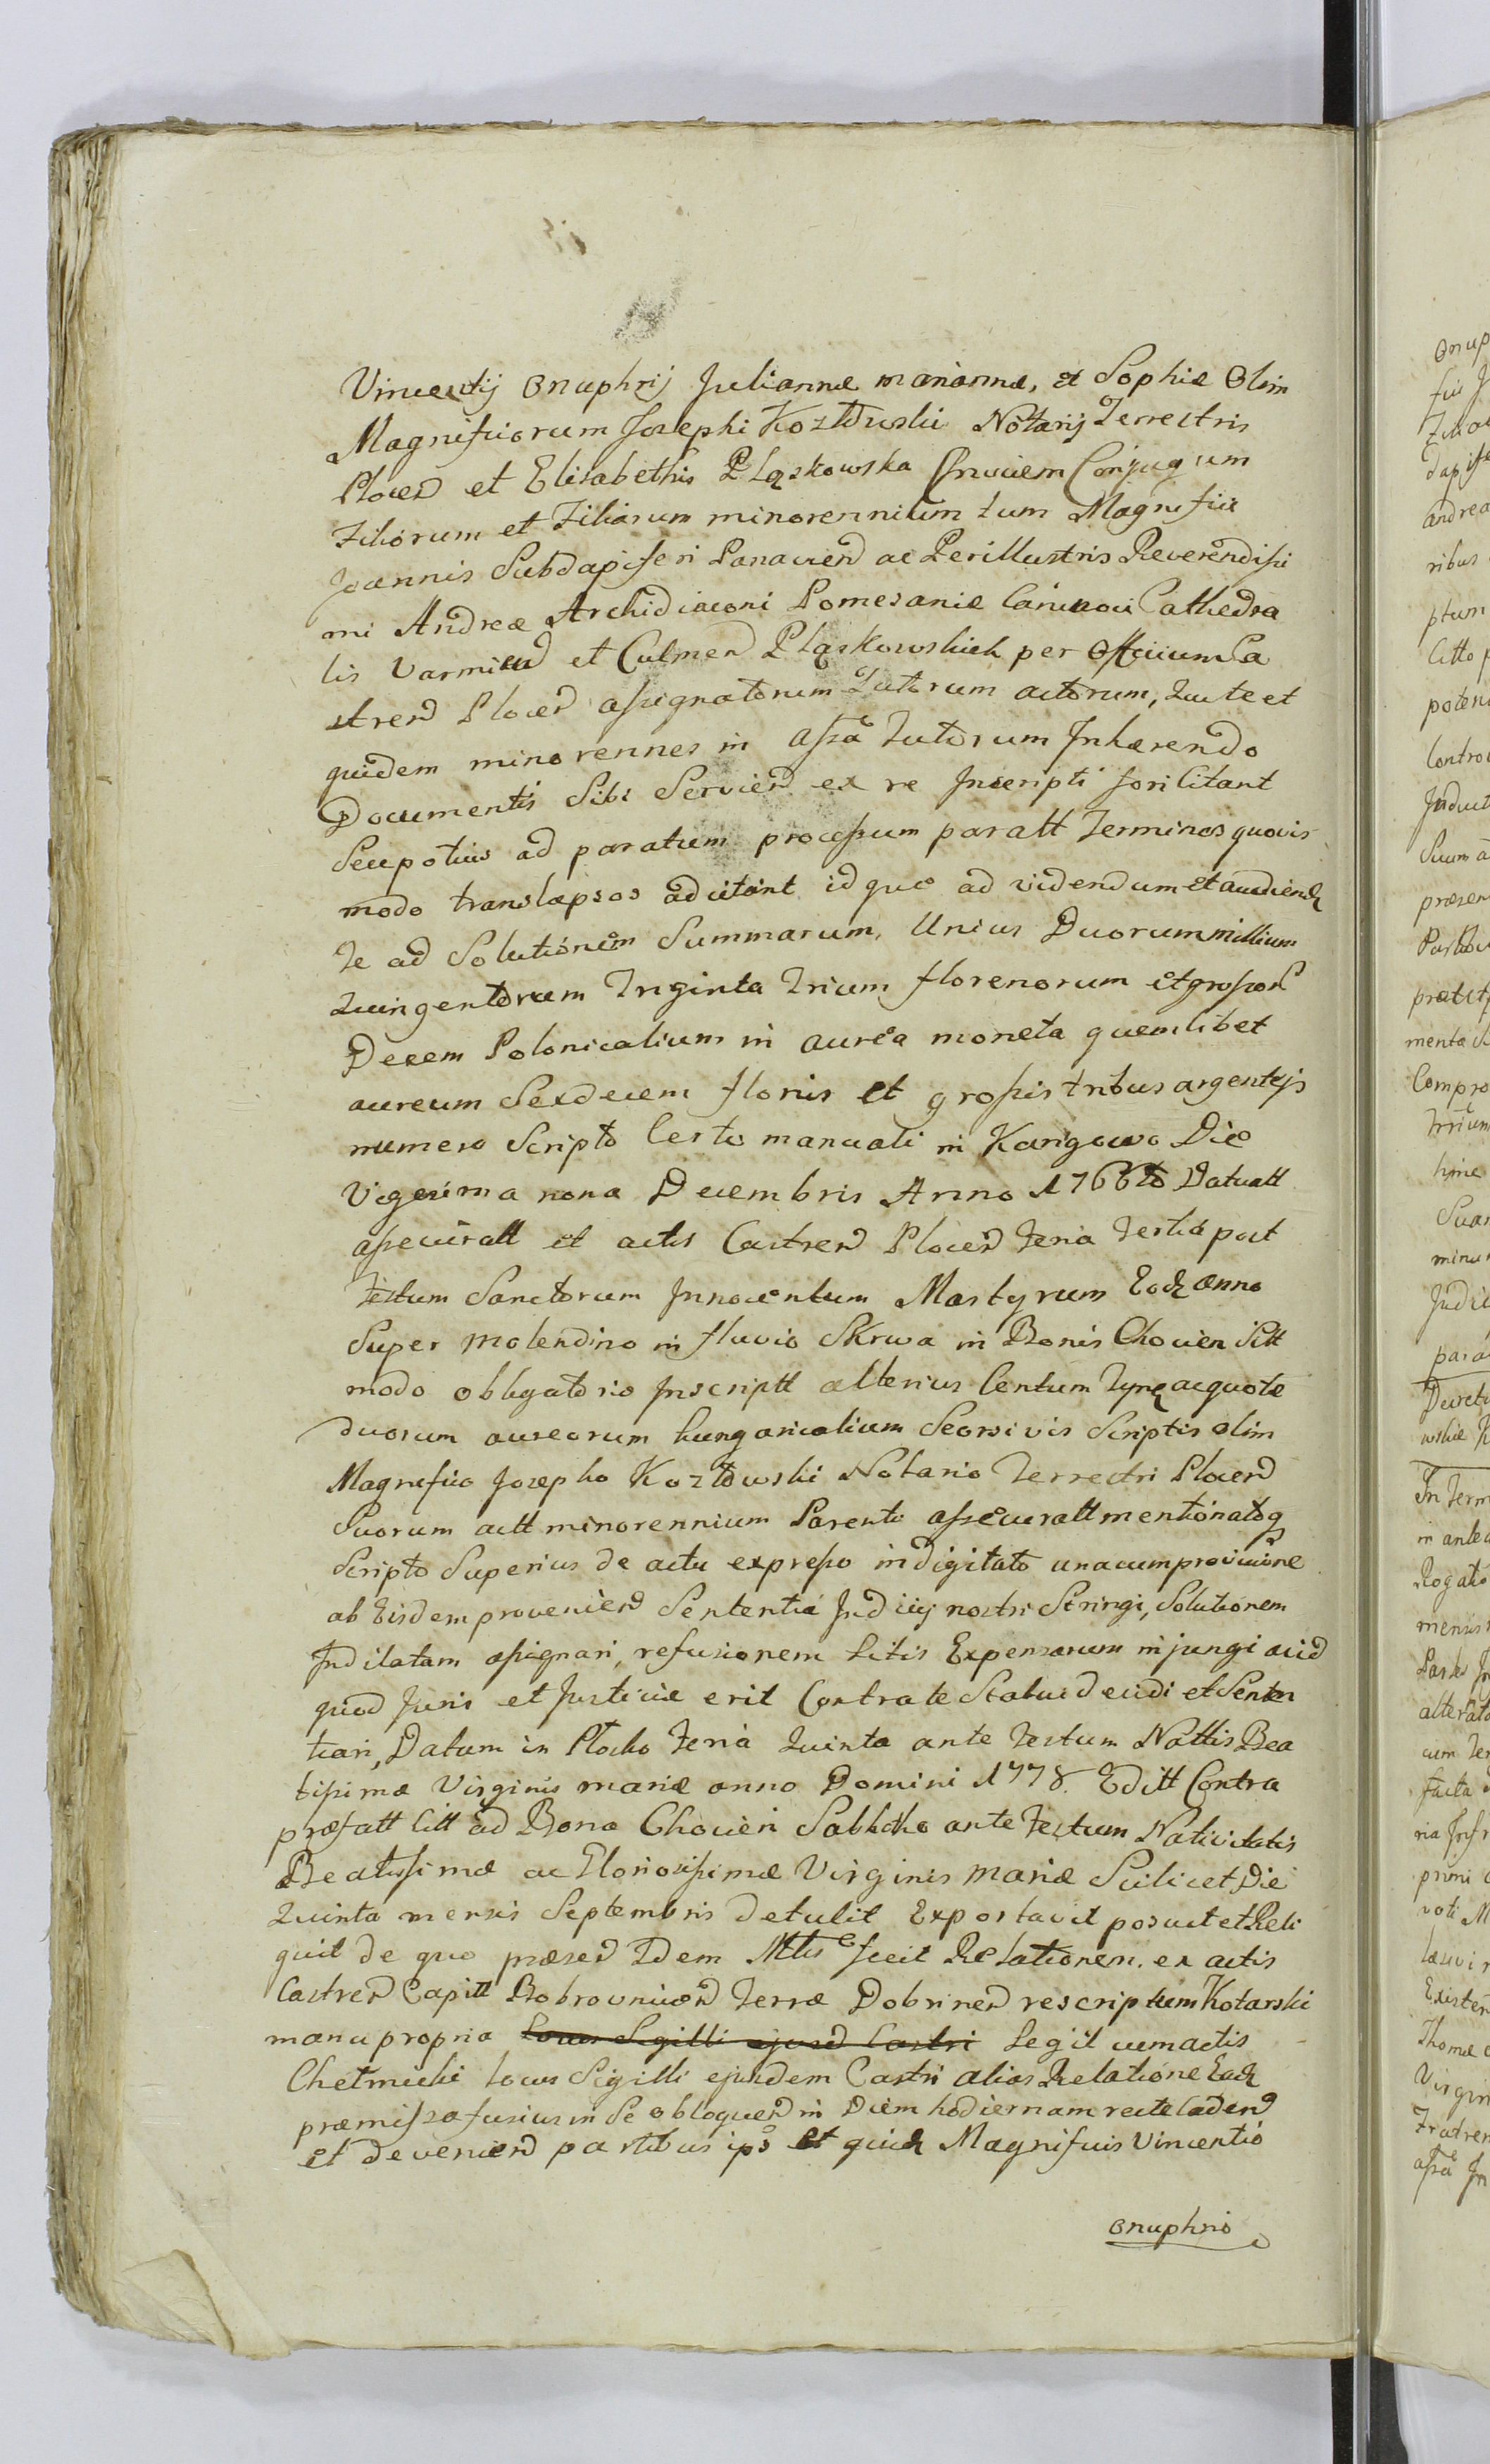 Vincentij Onuphrij Juliannæ mariannæ, et Sophiæ Olim
Magnificorum Josephi Kozłowski Notarij Terrestris
Plocen et Elisabethis Pląskowska Invicem Conjugum
Filiorum et Filiarum minorennium tum Magnifici
Joannis Subdapiferi Parnavien ac Perillustris Reverendissi
mi Andreæ Archidiaconi Pomesaniæ Canonici Cathedra
lis Varmien et Culmen Pląskowskich per Officium Ca
stren Plocen assignatorum Tutorum actorum, qui te et
quidem minorennes in assã Tutorum Inhærendo
Documentis Sibi Servien ex re Inscripti Succitant
Seu potius ad paratum processum paratt Terminos quovis
modo translapsos adcitant idque ad videndum et audiendq
Te ad Solutionem Summarum, Unius Duorum millium
Quingentorum Triginta Trium florenorum et grossor
Decem Polonicalium in aurea moneta quemlibet
aureum Sexdecem floris et grossis tribus argenteis
numero Scripto Certo manuali in Karigowo Die
Vigesima nona Decembris Anno 1766to Datuatt
assecuratt et actis Castren Plocen Feria Tertia post
Festum Sanctorum Innocentum Martyrum Eodq anno
Super molendino in fluvio Skrwa in Bonis Chocień Sitt
modo obligatorio Inscriptt alterius Centum Tynq acquotæ
duorum aureorum hungaricalium Seorsivis Scriptis olim
Magnifico Josepho Kozłowski Notario Terrestri Plocen
Suorum actt minorennium Parenti assecuratt mentionatoq
Scripto Superius de actu expresso indigitato una cum provisione
ab Eisdem provenien Sententia Judicij nostri Stringi, Solutionem
Indilatam assignari, refusionem Litis Expensarum injungi ac id
quod Juris et Justiciæ erit Contra te Statui decidi et Senten
tiari, Datum in Płocko Feria Quinta ante Festum Nattis Bea
tissimæ Virginis mariæ anno Domini 1778. Editt Contra
præfatt Citt ad Bona Chocień Sabbatho ante Festum Nativitatis
Beatissimæ ac Gloriosissimæ Virginis mariæ Scilicet Die
Quinta mensis Septembris detulit Exportavit posuit et Reli
quit de quo præsen Idem Mtlis fecit Relationem. ex actis
Castren Capitt Bobrovnicen Terræ Dobrinen rescriptum Kotarski
manu propria Locus Sigilli ejusd Castri Legit cum actis
Chełmicki locus Sigilli ejusdem Castri alias Relatione Eadq
præmissa fusius in Se obloquen in Diem hodiernam recte Caden
et devenien partibus ips et quidq Magnificis Vincentio
Onuphrio